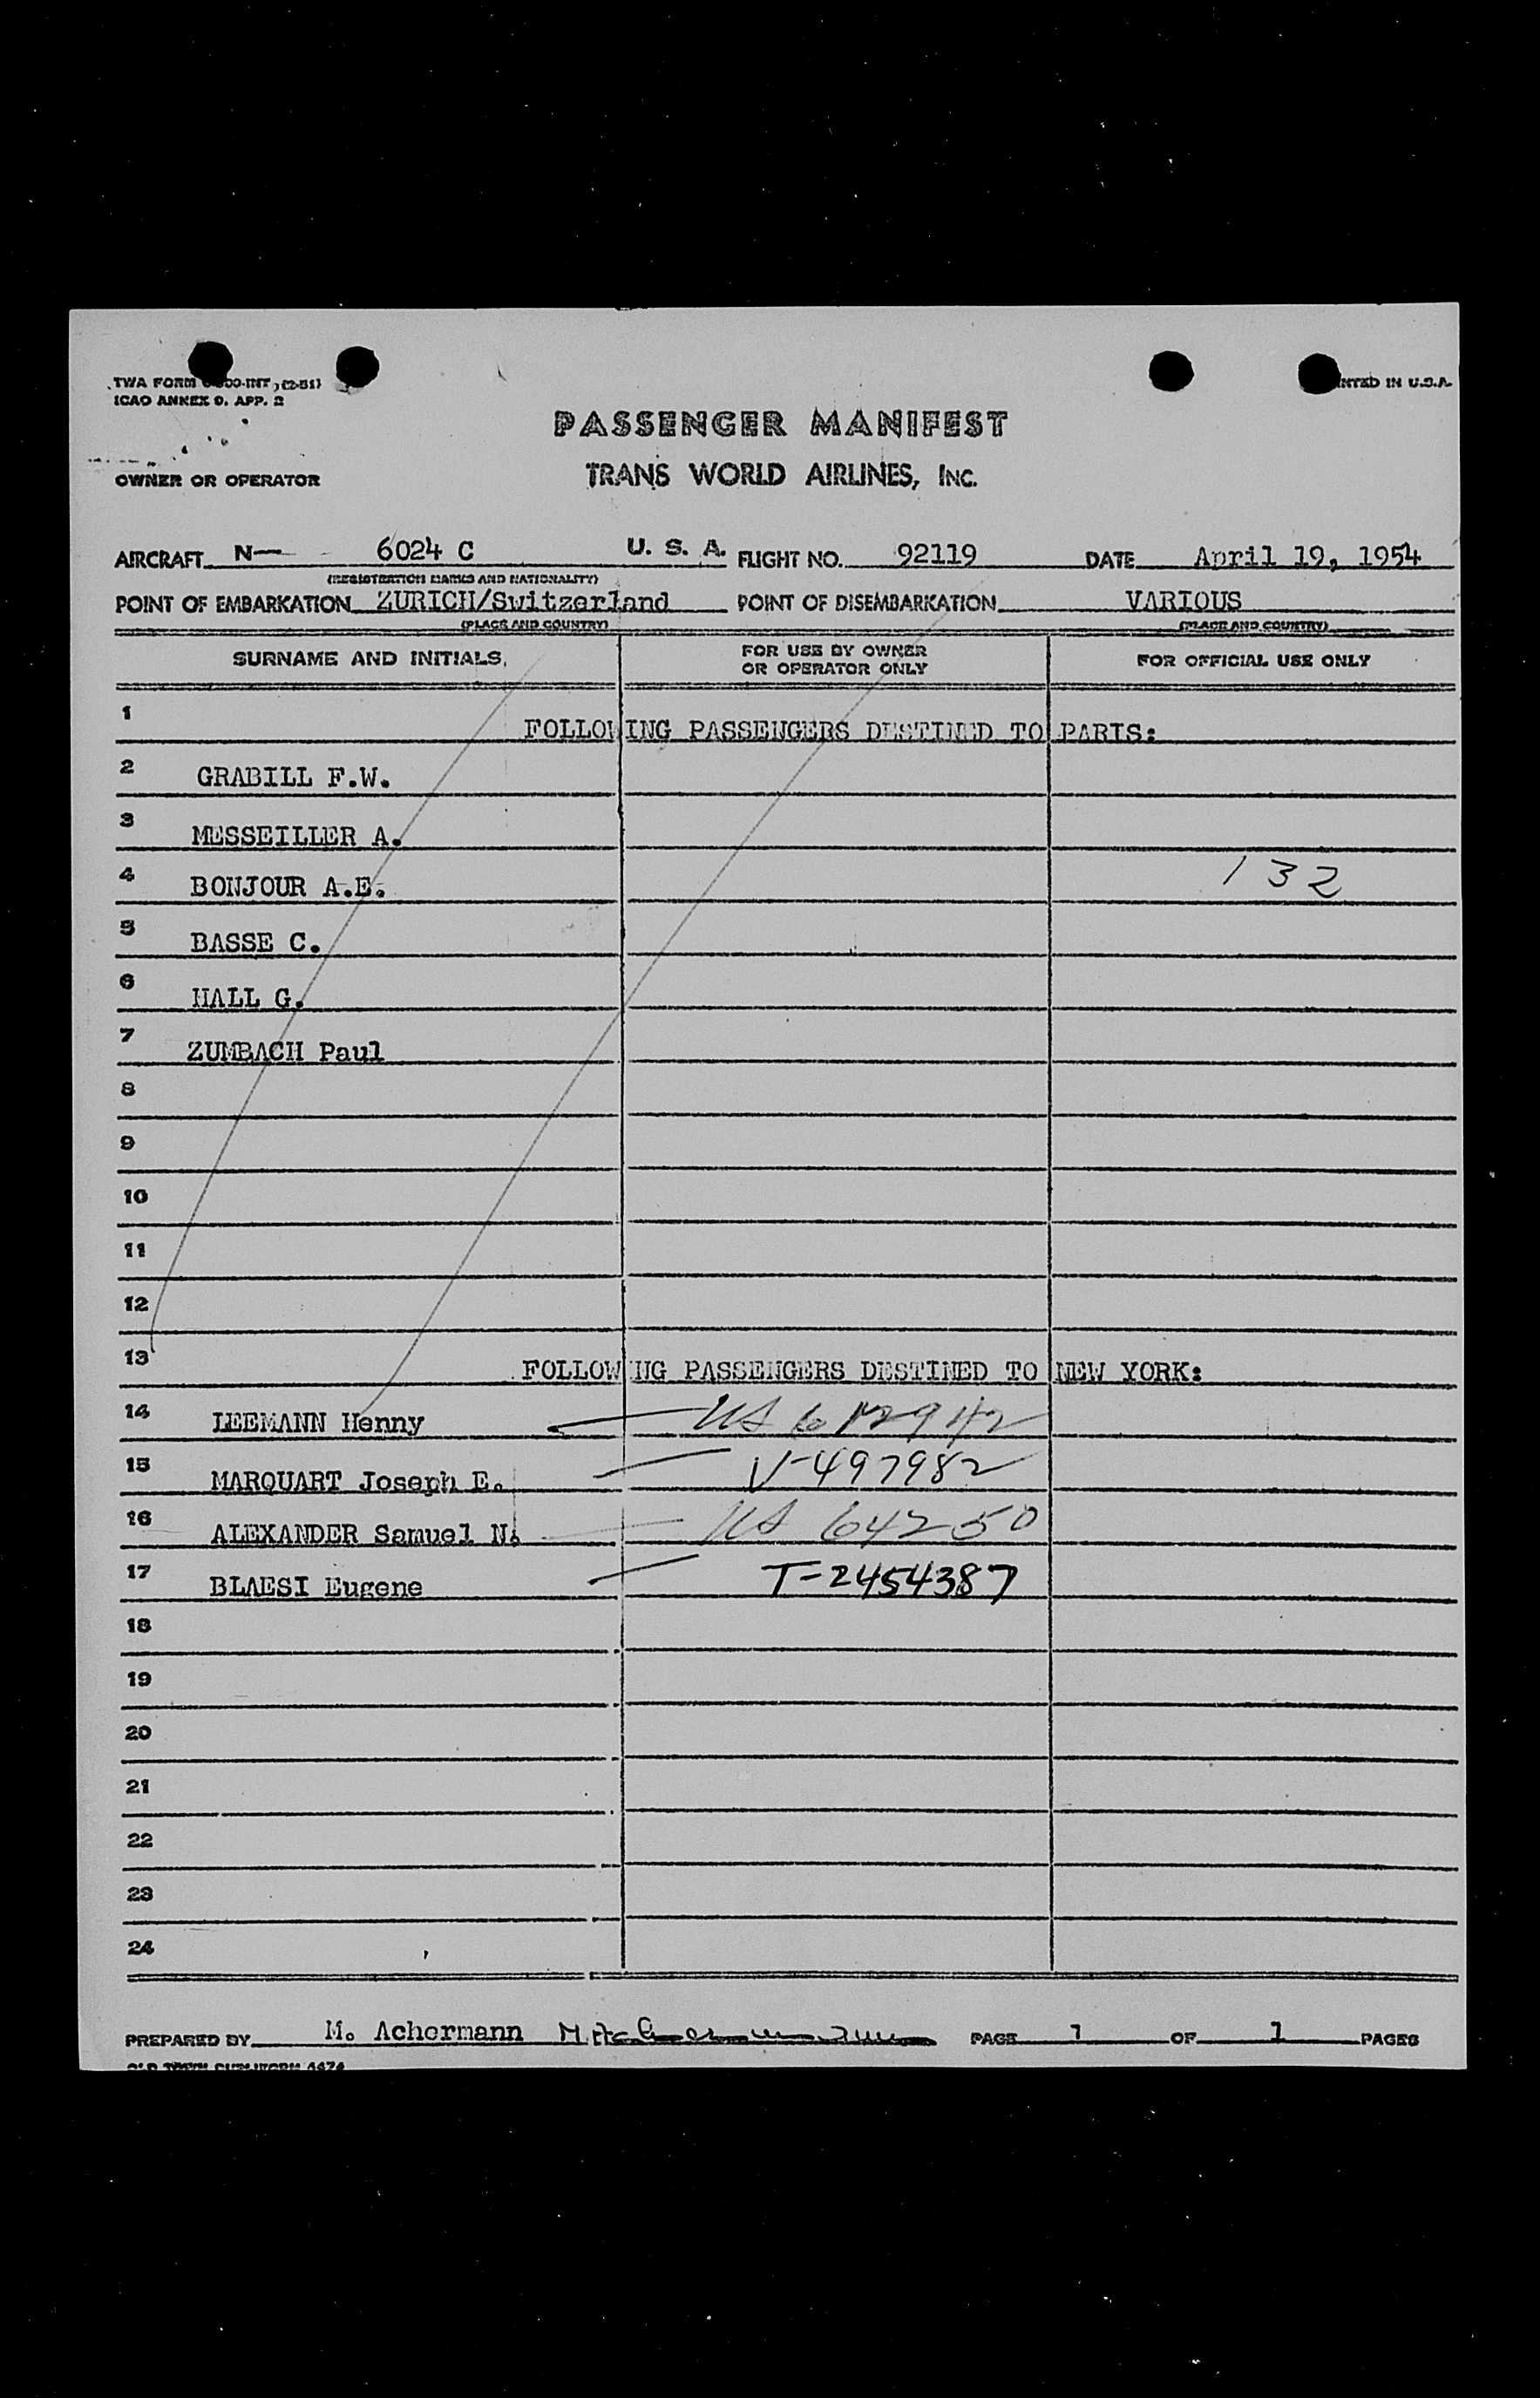 TWA FORM -INT (2-51)
ICAO ANNEX 9, APP. 2
PRINTED IN U.S.A.
PASSENGER MANIFEST
OWNER OR OPERATOR
TRANS WORLD AIRLINES, INC.
AIRCRAFT N— 6024 C U. S. A. FLIGHT NO. 92119 DATE April 19, 1954
(REGISTRATION MARKS AND NATIONALITY)
POINT OF EMBARKATION ZURICH/Switzerland POINT OF DISEMBARKATION VARIOUS
(PLACE AND COUNTRY) (PLACE AND COUNTRY)
SURNAME AND INITIALS FOR USE BY OWNER OR OPERATOR ONLY FOR OFFICIAL USE ONLY
1 FOLLOWING PASSENGERS DESTINED TO PARIS:
2 GRABILL F.W.
3 MESSEILLER A.
4 BONJOUR A.E. 132
5 BASSE C.
6 HALL G.
7 ZUMBACH Paul
8
9
10
11
12
13 FOLLOWING PASSENGERS DESTINED TO NEW YORK:
14 LEEMANN Henny US 612942
15 MARQUART Joseph E. V-497982
16 ALEXANDER Samuel N. US 64250
17 BLAESI Eugene T-2454387
18
19
20
21
22
23
24
PREPARED BY M. Achermann PAGE 1 OF 1 PAGES